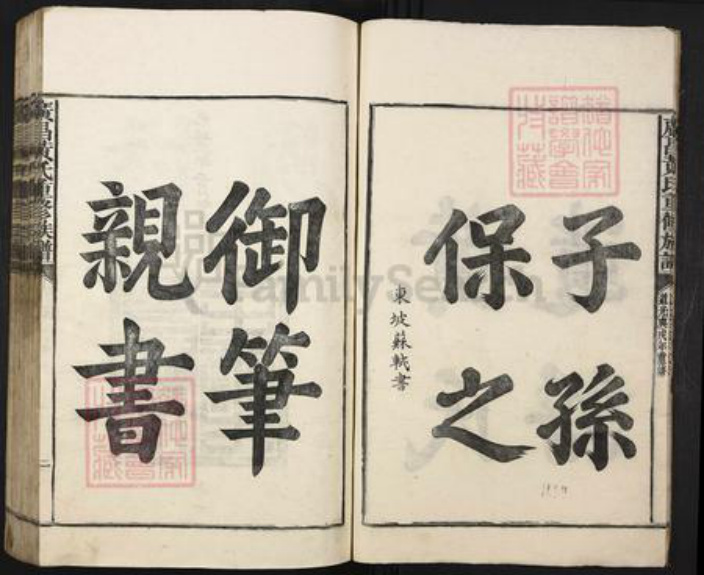 子孫
保之
東坡蘇軾書
御筆
親書
廣昌黃氏重修族譜
二
FamilySearch